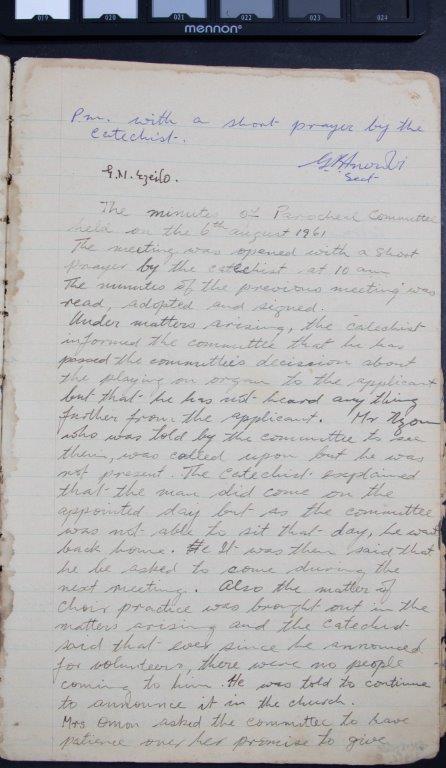 019 020 021 022 023 024
mennon
P.m. with a short prayer by the
Catechist.
Sect
G.N. Ezeilo.
The minutes of Parochial Committee
held on the 6th august 1961
The meeting was opened with a short
prayer by the catechist at 10 am
The minutes of the previous meeting was
read, adopted and signed.
Under matters arising, the catechist
informed the committee that he has
passed the committee's decission about
the playing on organ to the applicant
but that he has not heard any thing
further from the applicant. Mr
who was told by the committee to see
them, was called upon but he was
not present. The Catechist explained
that the man did come on the
appointed day but as the committee
was not able to sit that day, he went
back home. It was then said that
he be asked to come during the
next meeting. Also the matter of
choir practice was brought out in the
matters arising and the catechist
said that ever since he announced
for volunteers, there were no people
coming to him. He was told to continue
to announce it in the church.
Mrs Omon asked the committee to have
patience over her promise to give